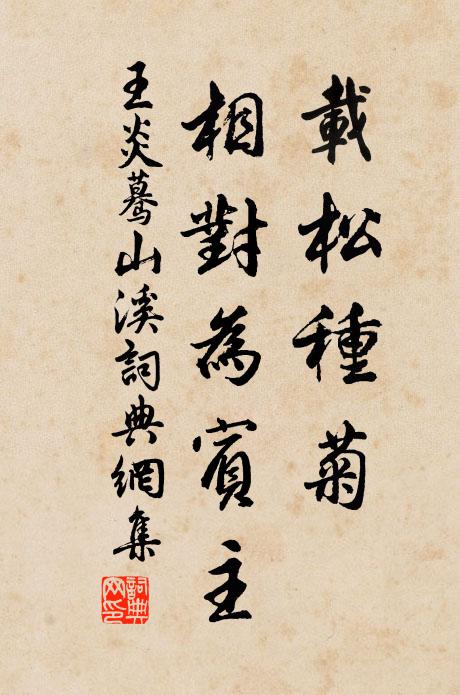 載松種菊
相對為賓主
王炎驀山溪詞典網集
詞典
网印